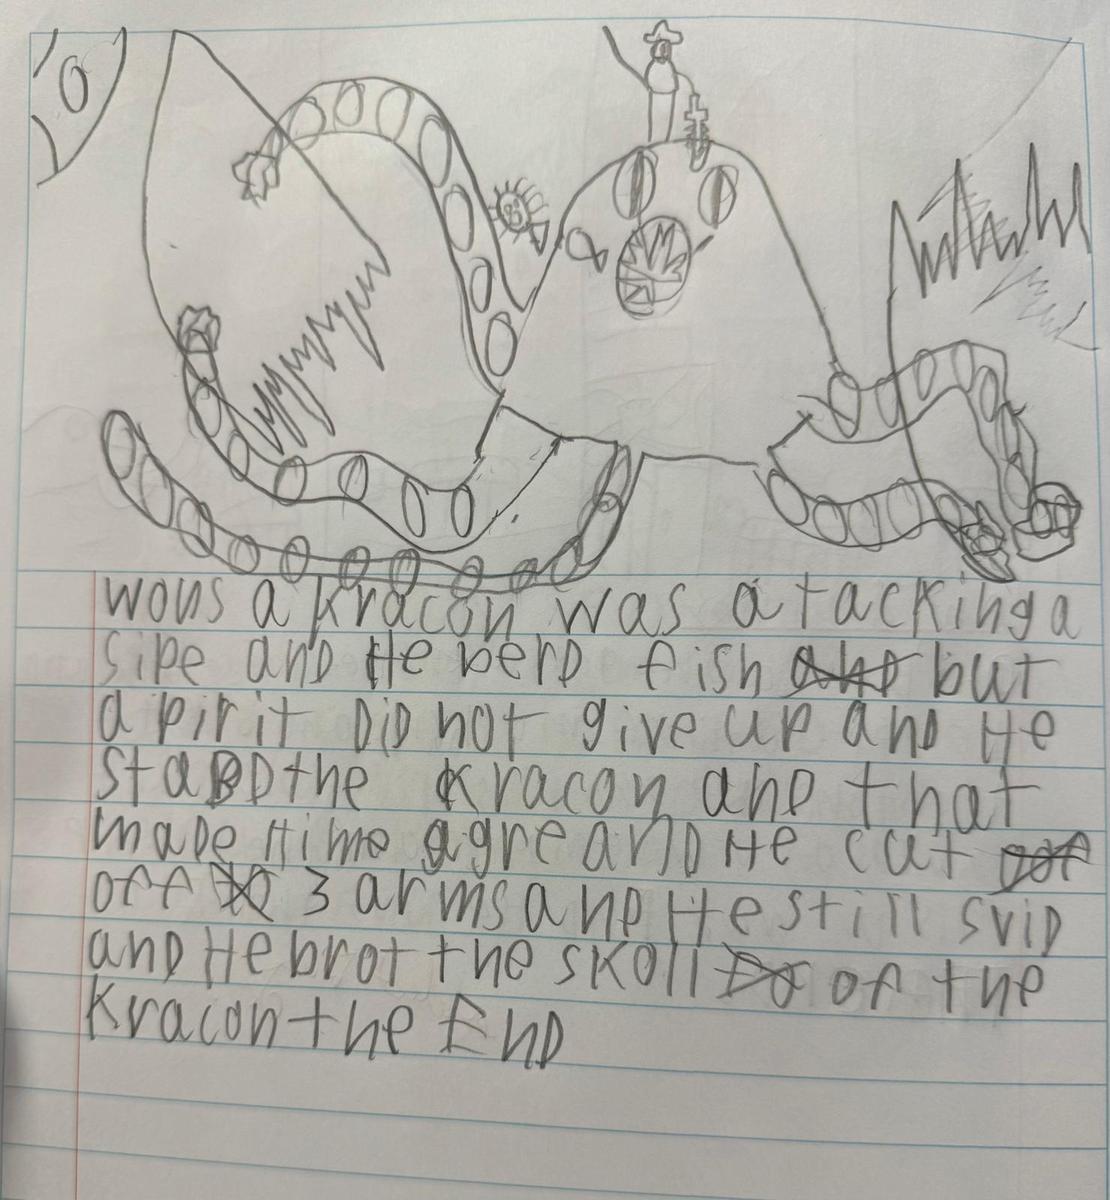 wons a kracon was a tacking a
sipe and He berD fish but
a pirit DiD not give up anD He
staBD the kracon anD that
maDe Hime agre anD He cut
off 3 arms anD He still sviD
anD He brot the skoll of the
kracon the EnD